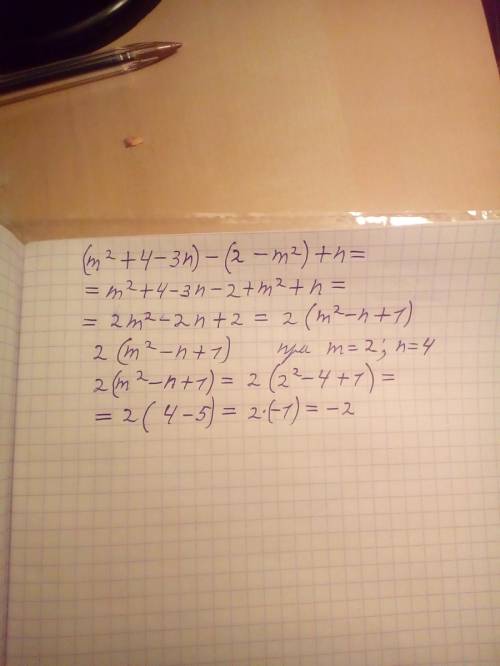 (m² + 4 - 3n) - (2 - m²) + n =
= m² + 4 - 3n - 2 + m² + n =
= 2m² - 2n + 2 = 2 (m² - n + 1)
2 (m² - n + 1) при m = 2; n = 4
2(m² - n + 1) = 2 (2² - 4 + 1) =
= 2 ( 4 - 5) = 2·(-1) = -2